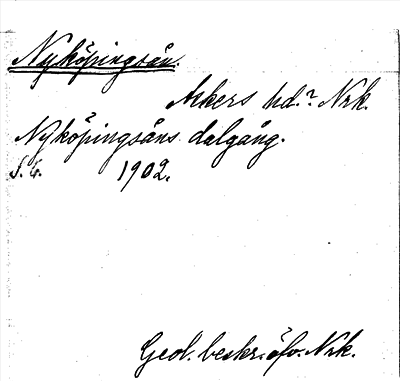 Nyköpingsån.
Askers hd.? Nrk.
Nyköpingsåns dalgång.
1902.
Geol. beskr. öfv. Nrk.